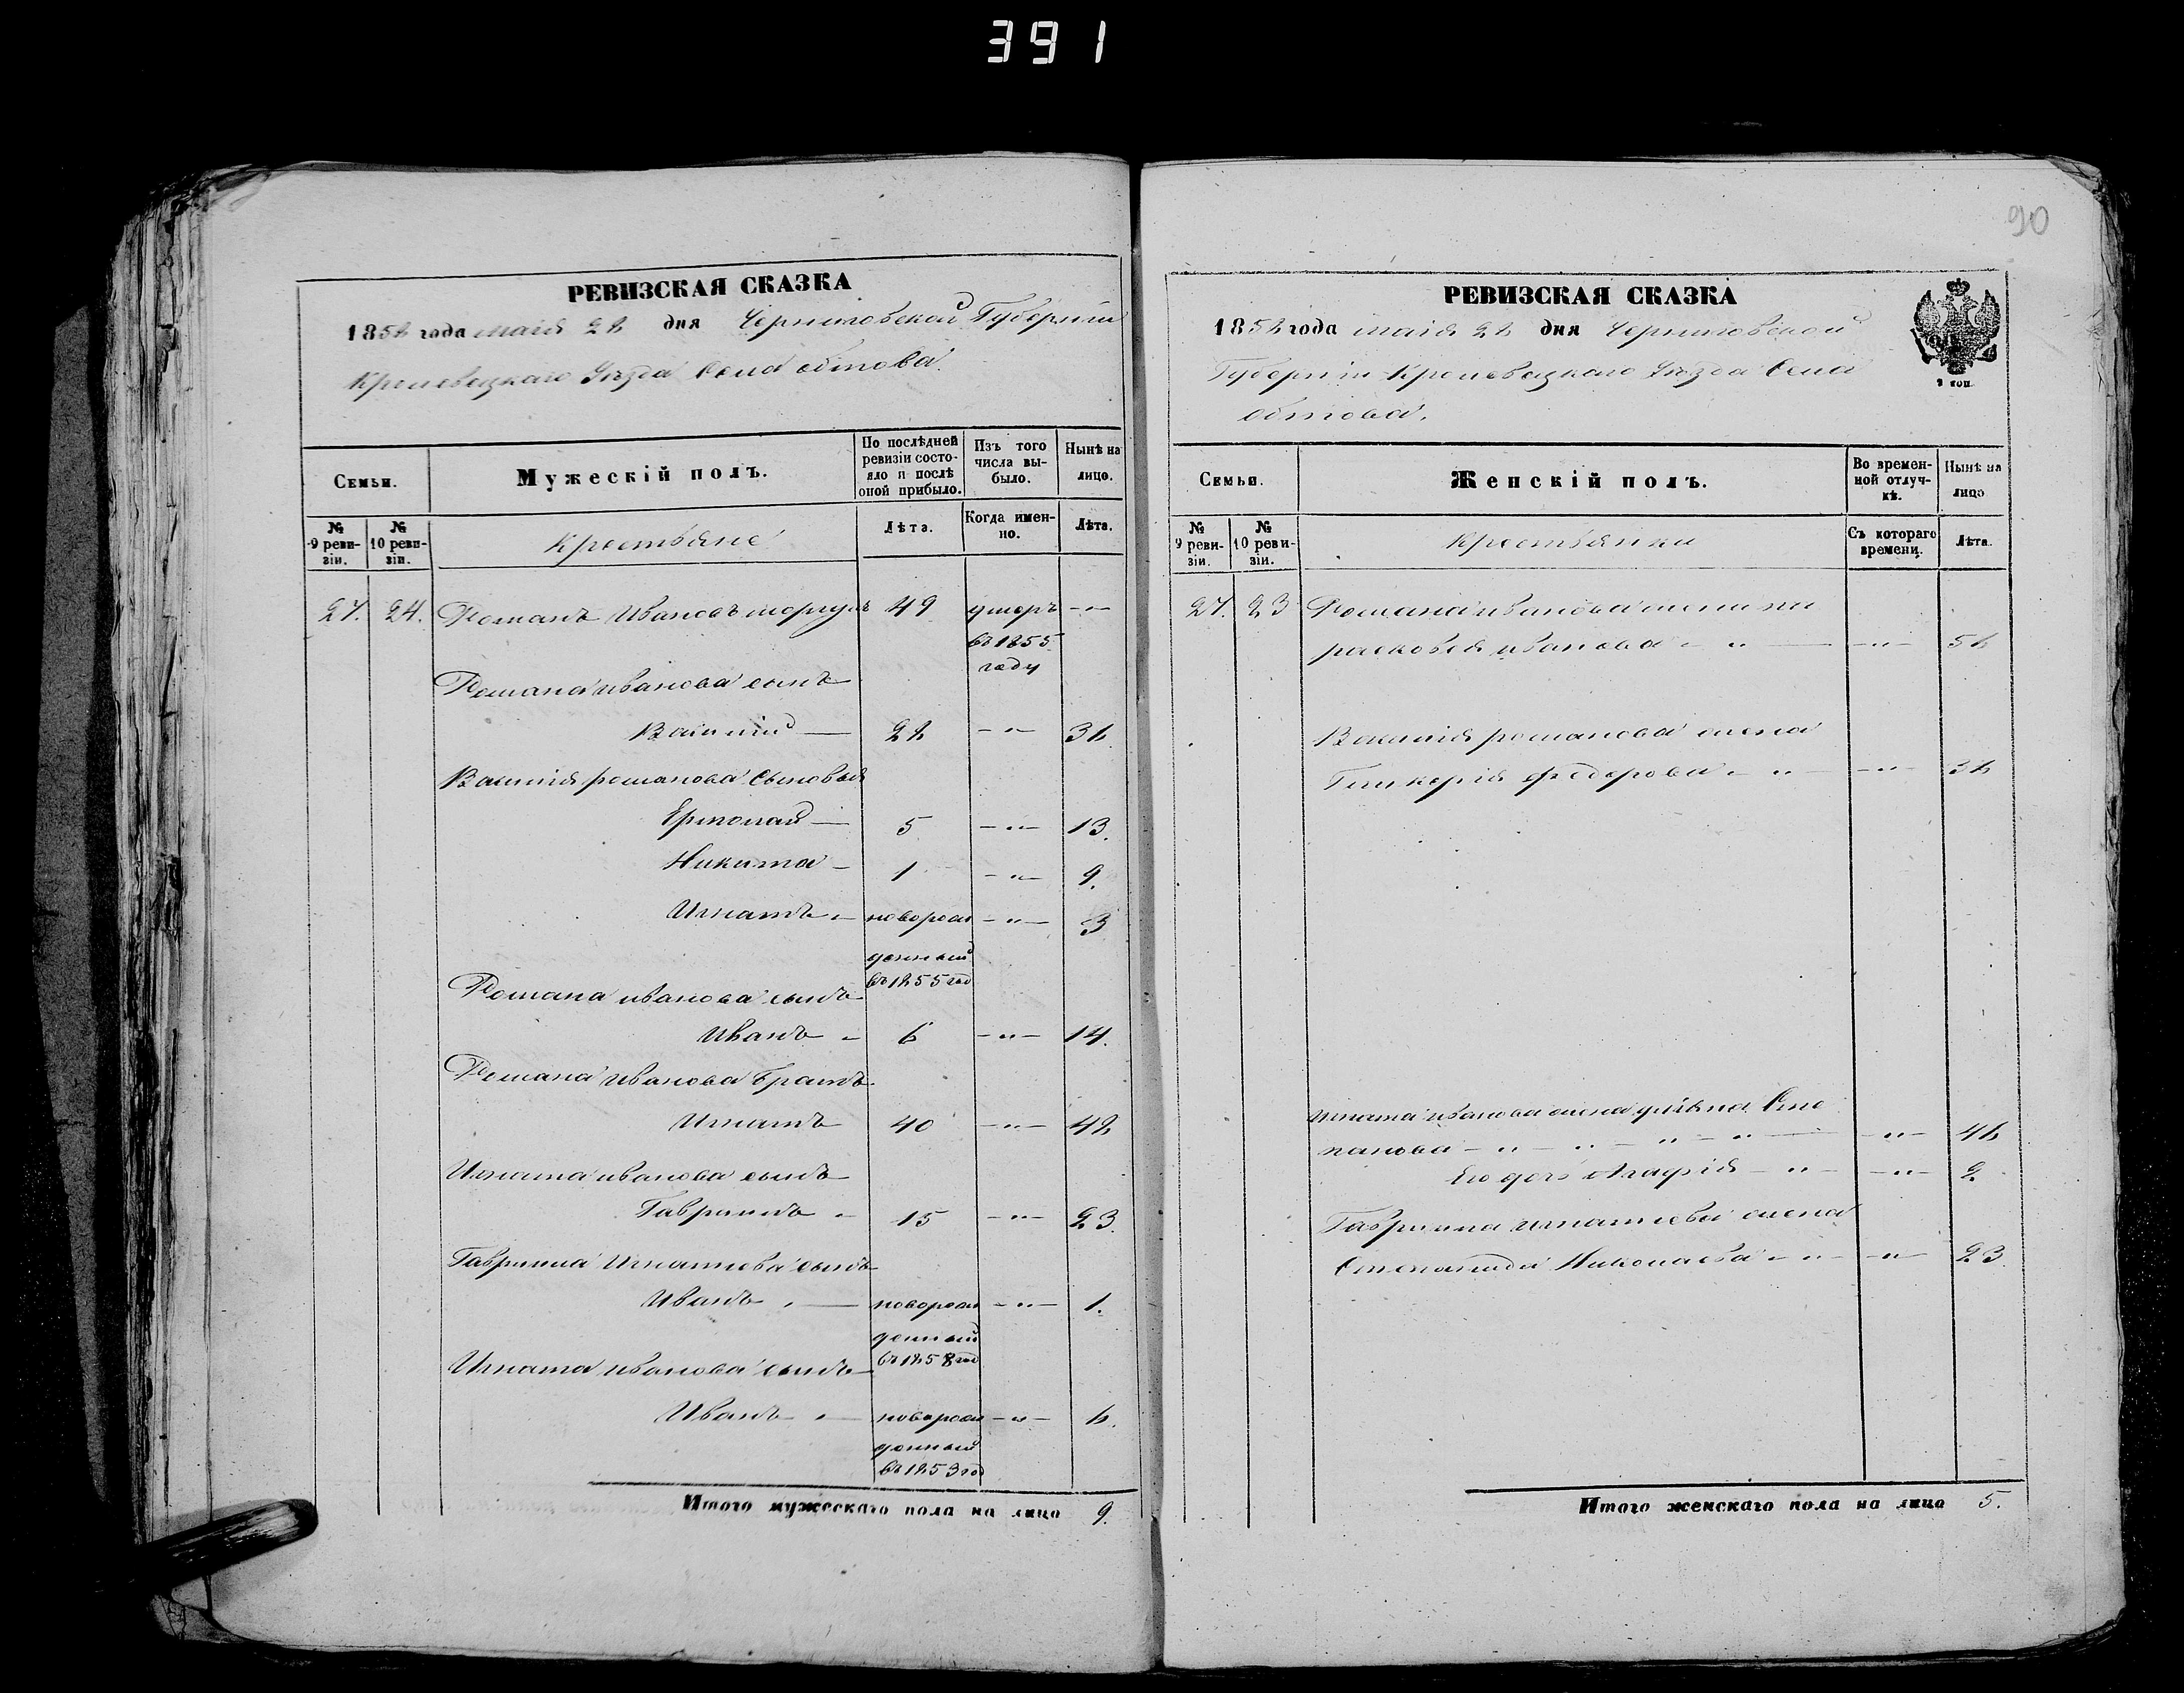 391
90
РЕВИЗСКАЯ СКАЗКА
1858 года маія 28 дня Черниговской Губерніи
Кролевецкаго Уѣзда Села обтова
Семьи.
Мужескій полъ.
По послѣдней ревизіи состояло и послѣ оной прибыло.
Изъ того числа выбыло.
Нынѣ на лицо.
№ 9 ревизіи.
№ 10 ревизіи.
Крестьяне
Лѣта.
Когда именно.
Лѣта.
27. 24. Романъ Ивановъ 49 умеръ -"-
въ 1855
году
Романа иванова сынъ
Василій — 28 -"- 36
Василія романова Сыновья
Ермолай — 5 -"- 13.
Никита — 1 -"- 9.
Игнатъ новорож -"- 3
денный
въ 1855 год
Романа иванова сынъ
Иванъ 6 -"- 14.
Романа Иванова братъ
Игнатъ 40 -"- 48
Игната иванова сынъ
Гаврилъ 15 -"- 23.
Гаврила Игнатова сынъ
Иванъ — новорож -"- 1.
денный
въ 1858 год
Игната иванова сынъ
Иванъ — новорож -"- 6.
денный
въ 1853 год
Итого мужескаго пола на лицо 9.
РЕВИЗСКАЯ СКАЗКА
1858 года маія 28 дня Черниговской
Губерніи Кролевецкаго Уѣзда Села
обтова.
2 коп.
Семьи.
Женскій полъ.
Во временной отлучкѣ.
Нынѣ на лицо
№ 9 ревизіи.
№ 10 ревизіи.
Крестьянки
Съ котораго времени.
Лѣта.
27. 23 Романа иванова жена па
расковея иванова -"- -"- 56
Василія романова жена
Гликерія федорова -"- -"- 36
Игната иванова жена Сте
панова -"- -"- -"- -"- -"- 46
Ею дочь Агафія -"- -"- 2
Гаврила игнатіева жена
Степанида Николаева -"- -"- 23.
Итого женскаго пола на лицо 5.